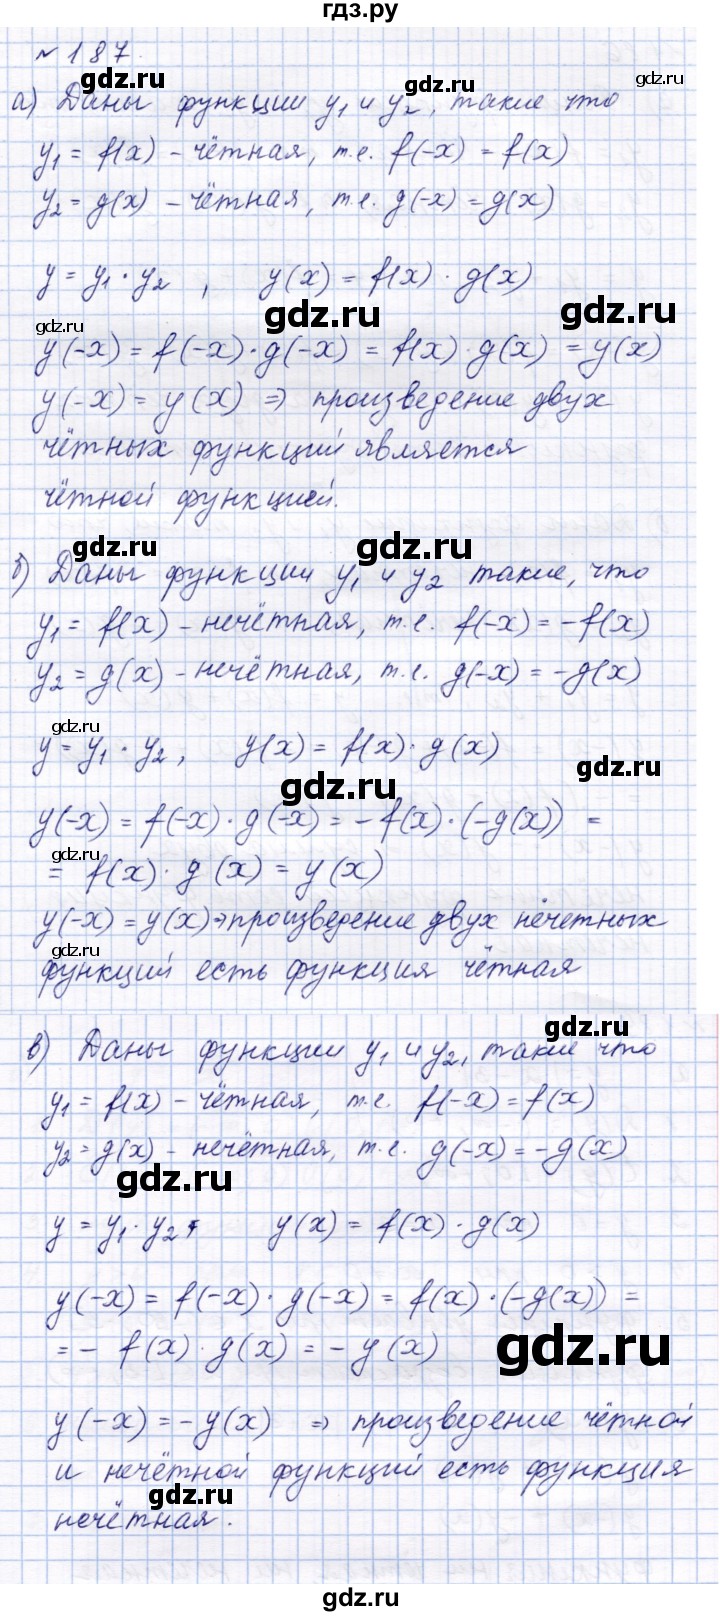 гдз.ру
№ 187.
gdz.ru gdz.ru gdz.ru
а) Даны функции y₁ и y₂, такие что
y₁ = f(x) – чётная, т.е. f(-x) = f(x)
y₂ = g(x) – чётная, т.е. g(-x) = g(x)
y = y₁ · y₂ , y(x) = f(x) · g(x)
gdz.ru gdz.ru gdz.ru
y(-x) = f(-x) · g(-x) = f(x) · g(x) = y(x)
y(-x) = y(x) ⇒ произведение двух
чётных функций является
чётной функцией.
gdz.ru gdz.ru
б) Даны функции y₁ и y₂ такие, что
y₁ = f(x) – нечётная, т.е. f(-x) = -f(x)
y₂ = g(x) – нечётная, т.е. g(-x) = -g(x)
gdz.ru
y = y₁ · y₂, y(x) = f(x) · g(x)
gdz.ru
gdz.ru
y(-x) = f(-x) · g(-x) = -f(x) · (-g(x)) =
gdz.ru
= f(x) · g(x) = y(x)
y(-x) = y(x) ⇒ произведение двух нечетных
gdz.ru
функций есть функция чётная
gdz.ru
в) Даны функции y₁ и y₂, такие что
y₁ = f(x) – чётная, т.е. f(-x) = f(x)
y₂ = g(x) – нечётная, т.е. g(-x) = -g(x)
gdz.ru
y = y₁ · y₂, y(x) = f(x) · g(x)
y(-x) = f(-x) · g(-x) = f(x) · (-g(x)) =
= - f(x) · g(x) = -y(x)
gdz.ru
y(-x) = -y(x) ⇒ произведение чётной
и нечётной функций есть функция
gdz.ru
нечётная.
gdz.ru